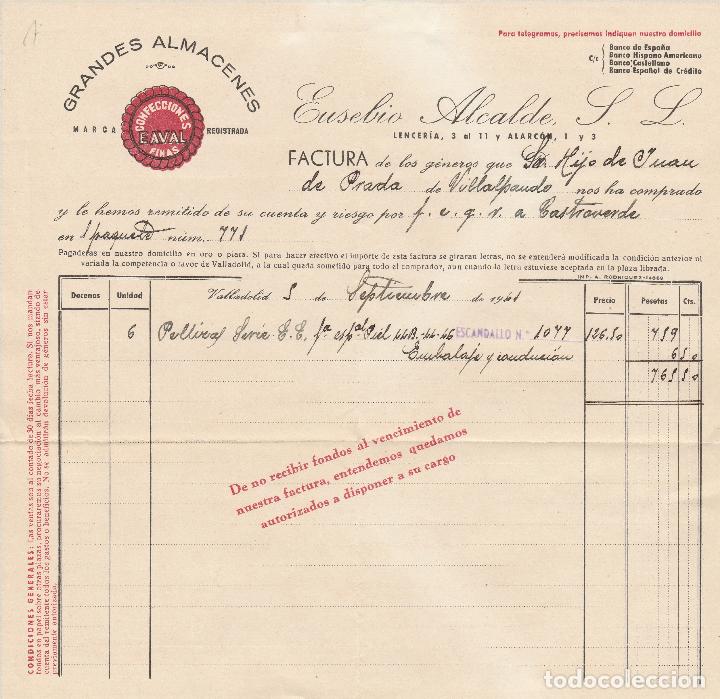 Para telegramas, precisamos indiquen nuestro domicilio
GRANDES ALMACENES
MARCA REGISTRADA
CONFECCIONES
EAVAL
FINAS
C/c
Banco de España
Banco Hispano Americano
Banco Castellano
Banco Español de Crédito
Eusebio Alcalde, S. L.
LENCERÍA, 3 al 11 y ALARCÓN, 1 y 3
FACTURA de los géneros que Hijo de Juan
de Prada de Villalpando nos ha comprado
y le hemos remitido de su cuenta y riesgo por f. c. a Castroverde
en 1 paquete núm. 771
Pagaderas en nuestro domicilio en oro o plata. Si para hacer efectivo el importe de esta factura se giraran letras, no se entenderá modificada la condición anterior ni
variada la competencia o favor de Valladolid, a la cual queda sometido para todo el comprador, aun cuando la letra estuviese aceptada en la plaza librada.
IMP. A. RODRIGUEZ
Docenas Unidad Valladolid 5 de Septiembre de 1941 Precio Pesetas Cts.
6 Serie Piel ESCANDALLO N.º 1077 126,50 759
Embalaje y conducción 6 50
765 50
De no recibir fondos al vencimiento de
nuestra factura, entendemos quedamos
autorizados a disponer a su cargo
CONDICIONES GENERALES: Las ventas son al contado de 30 días fecha factura. Si nos mandan
fondos en papel sobre otras plazas, procuraremos su negociación al cambio más ventajoso, siendo de
cuenta del remitente todos los gastos o beneficios. No se admitirán devolución de géneros sin estar
previamente autorizada.
todocoleccion.net